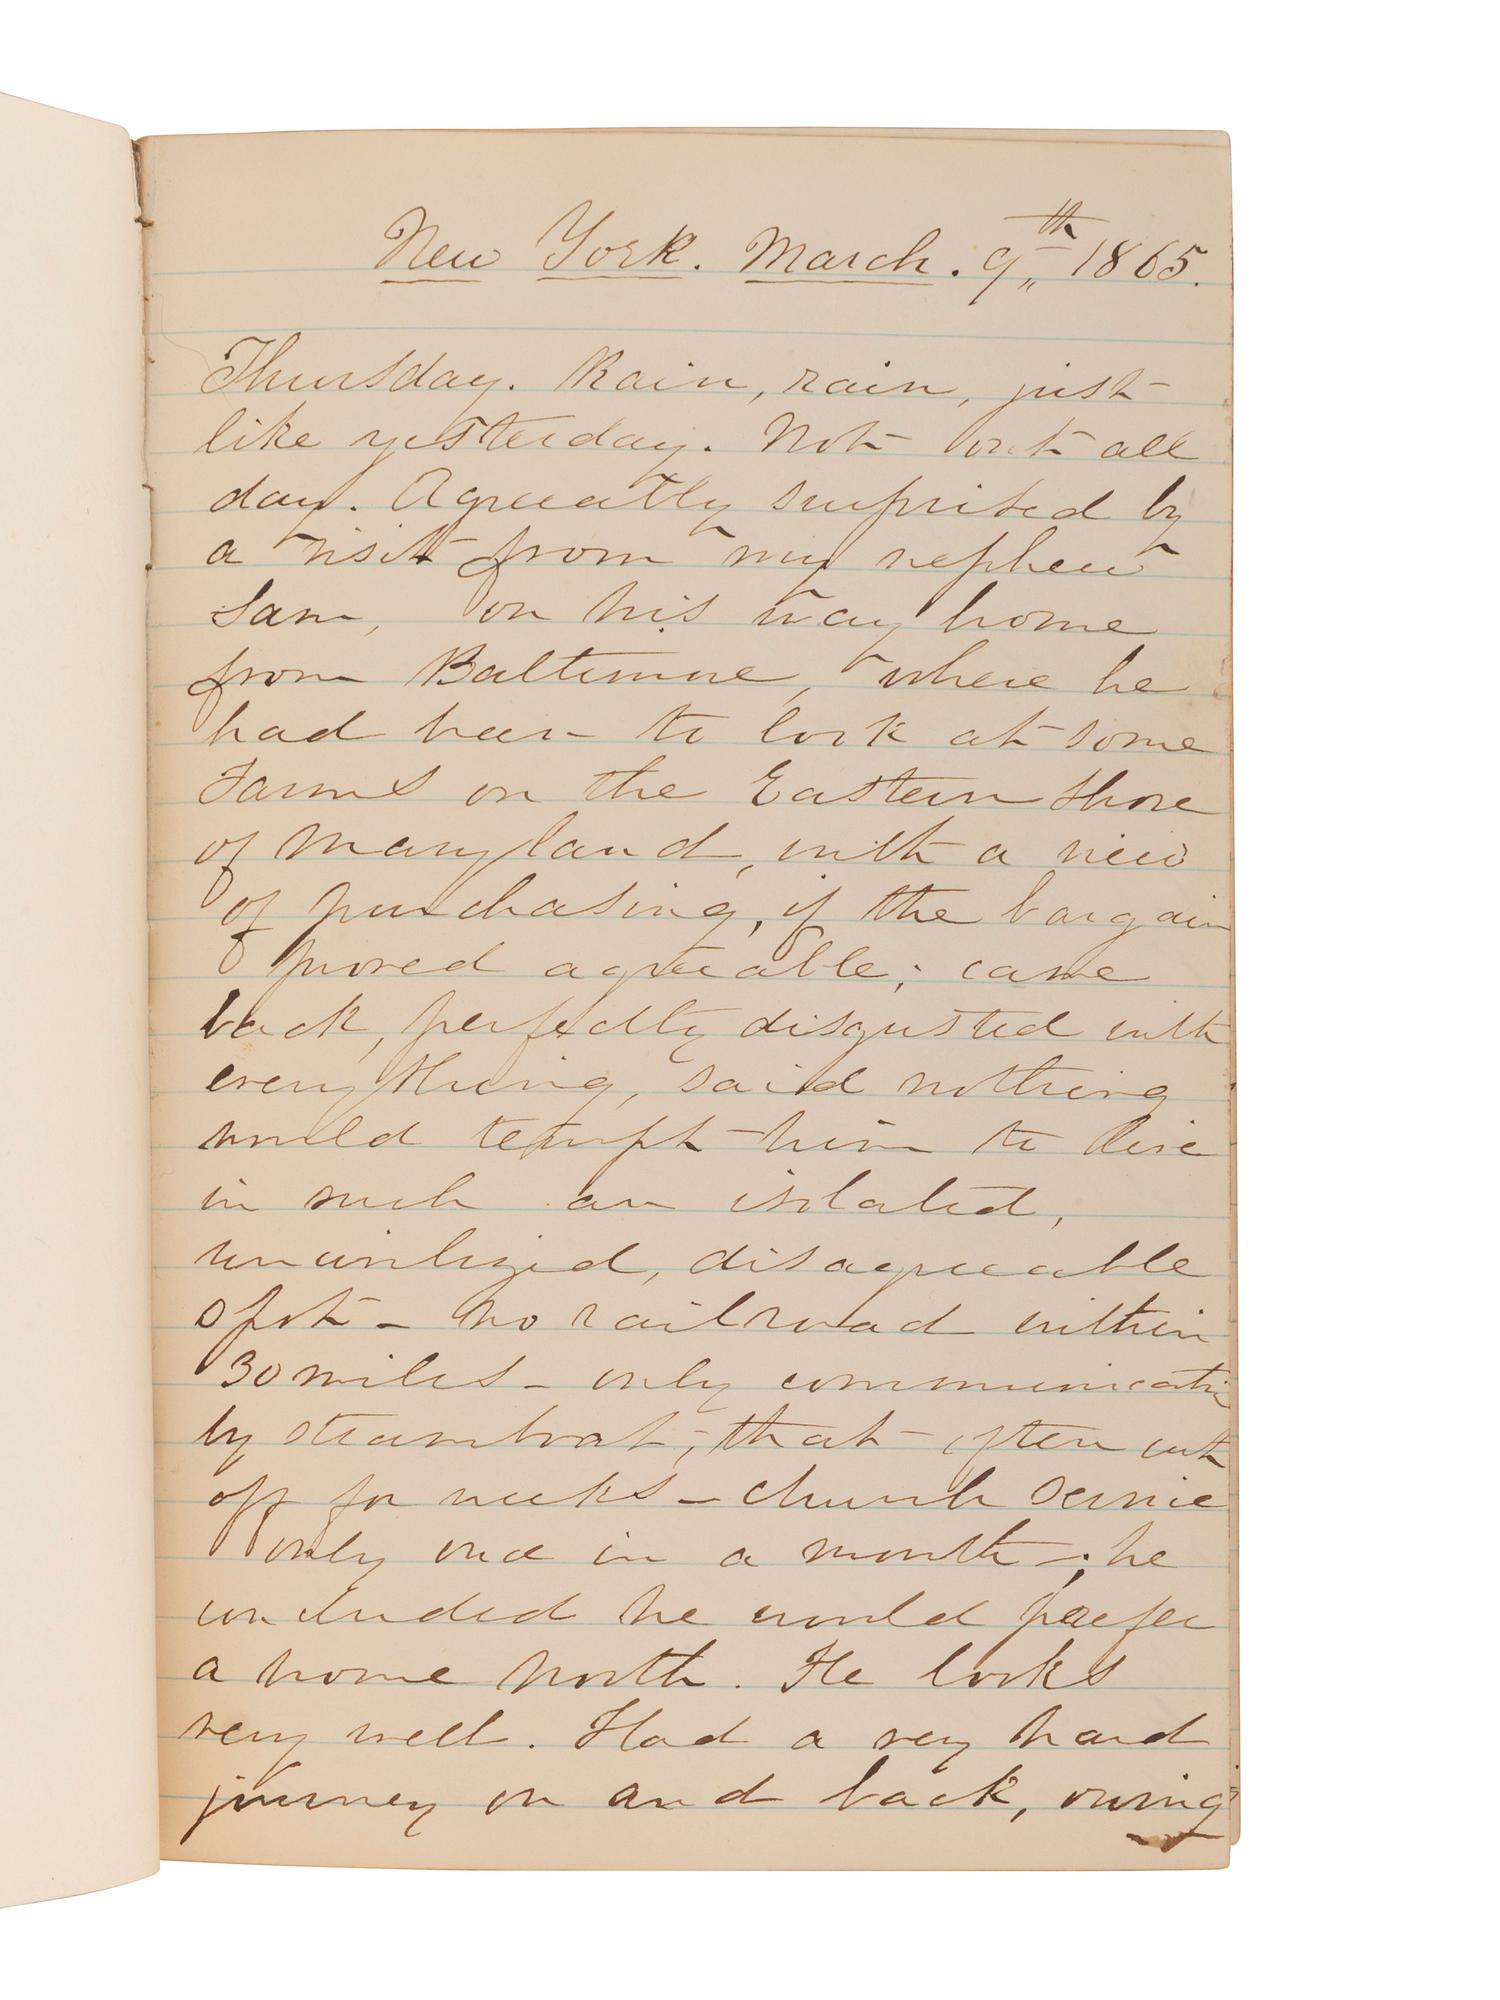 New York. March. 9th 1865.
Thursday. Rain, rain, just
like yesterday. Not out all
day. Agreeably surprised by
a visit from my nephew
Sam, on his way home
from Baltimore, where he
had been to look at some
Farms on the Eastern Shore
of Maryland, with a view
of purchasing, if the bargain
proved agreeable; came
back, perfectly disgusted with
everything, said nothing
would tempt him to live
in such an isolated,
uncivilized, disagreeable
spot - no railroad within
30 miles - only communication
by steamboat, that often cut
off for weeks - church service
only once in a month -; he
concluded he would prefer
a home North. He looks
very well. Had a very hard
journey on and back, owing